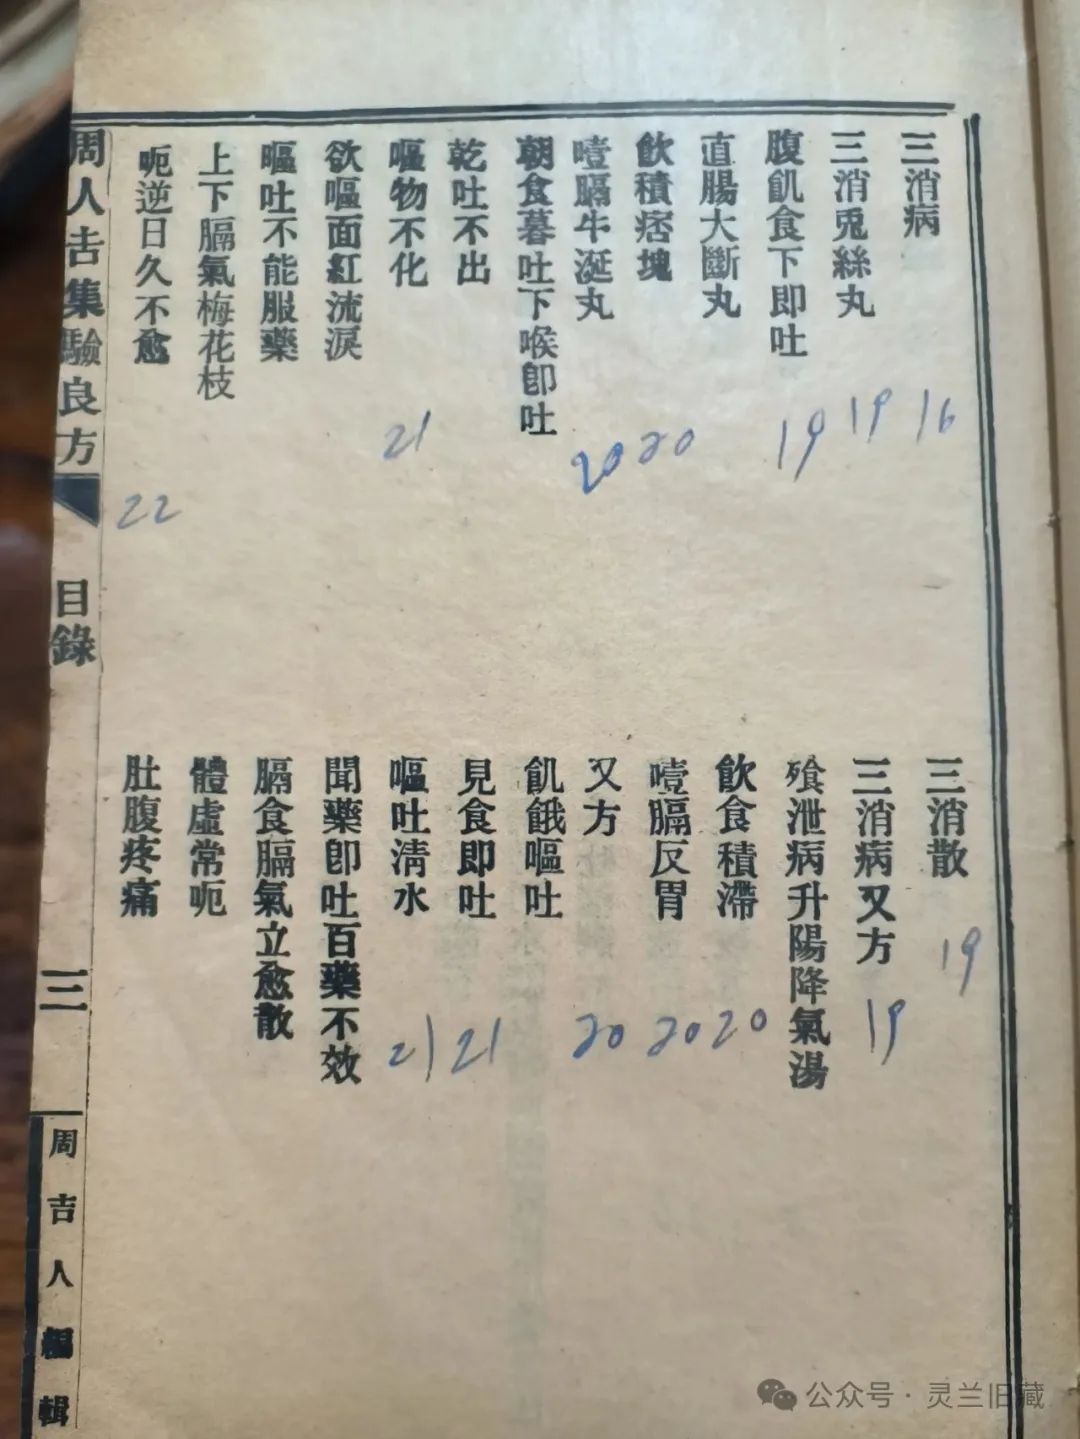 三消病 16
三消散 19
三消兎絲丸 19
三消病又方 19
腹飢食下即吐 19
飱泄病升陽降氣湯
直腸大斷丸
飲食積滯 20
飲積痞塊 20
噎膈反胃 20
噎膈牛涎丸 20
又方 20
朝食暮吐下喉卽吐
飢餓嘔吐
乾吐不出
見食即吐 21
嘔物不化 21
嘔吐清水 21
欲嘔面紅流淚
聞藥卽吐百藥不效
嘔吐不能服藥
膈食膈氣立愈散
上下膈氣梅花枝
體虛常呃
呃逆日久不愈 22
肚腹疼痛
周人吉集驗良方
目錄
三
周吉人編輯
公众号·灵兰旧藏